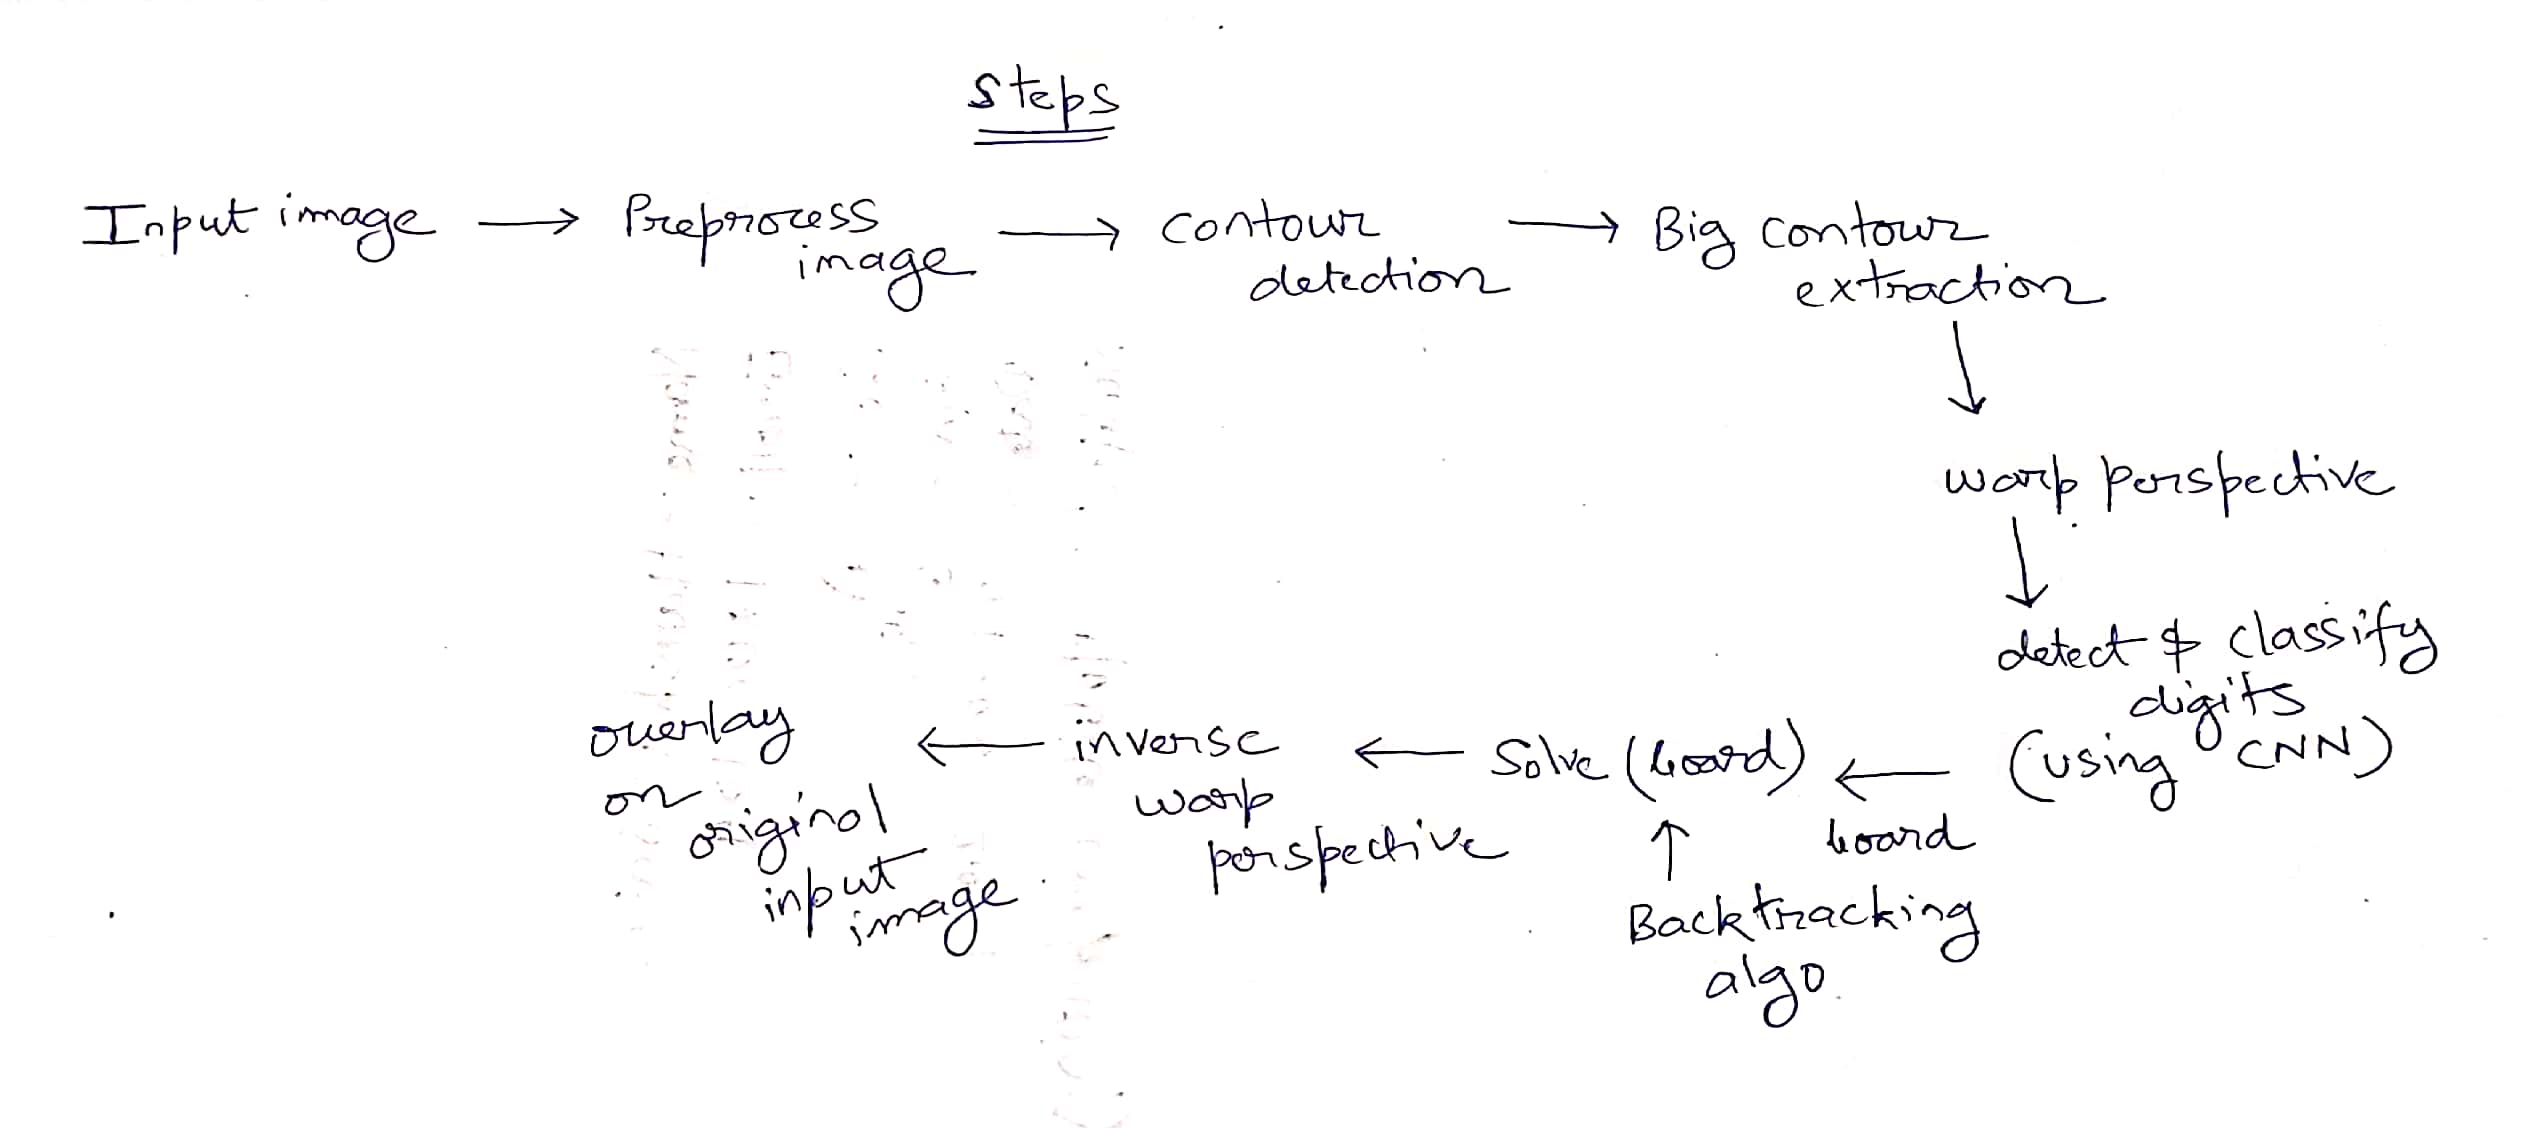 Steps
Input image → Preprocess
image → contour
detection → Big contour
extraction
↓
warp perspective
↓
detect & classify
digits
(using CNN)
← board
Solve (board)
↑
Backtracking
algo.
← inverse
warp
perspective
← overlay
on
original
input
image.